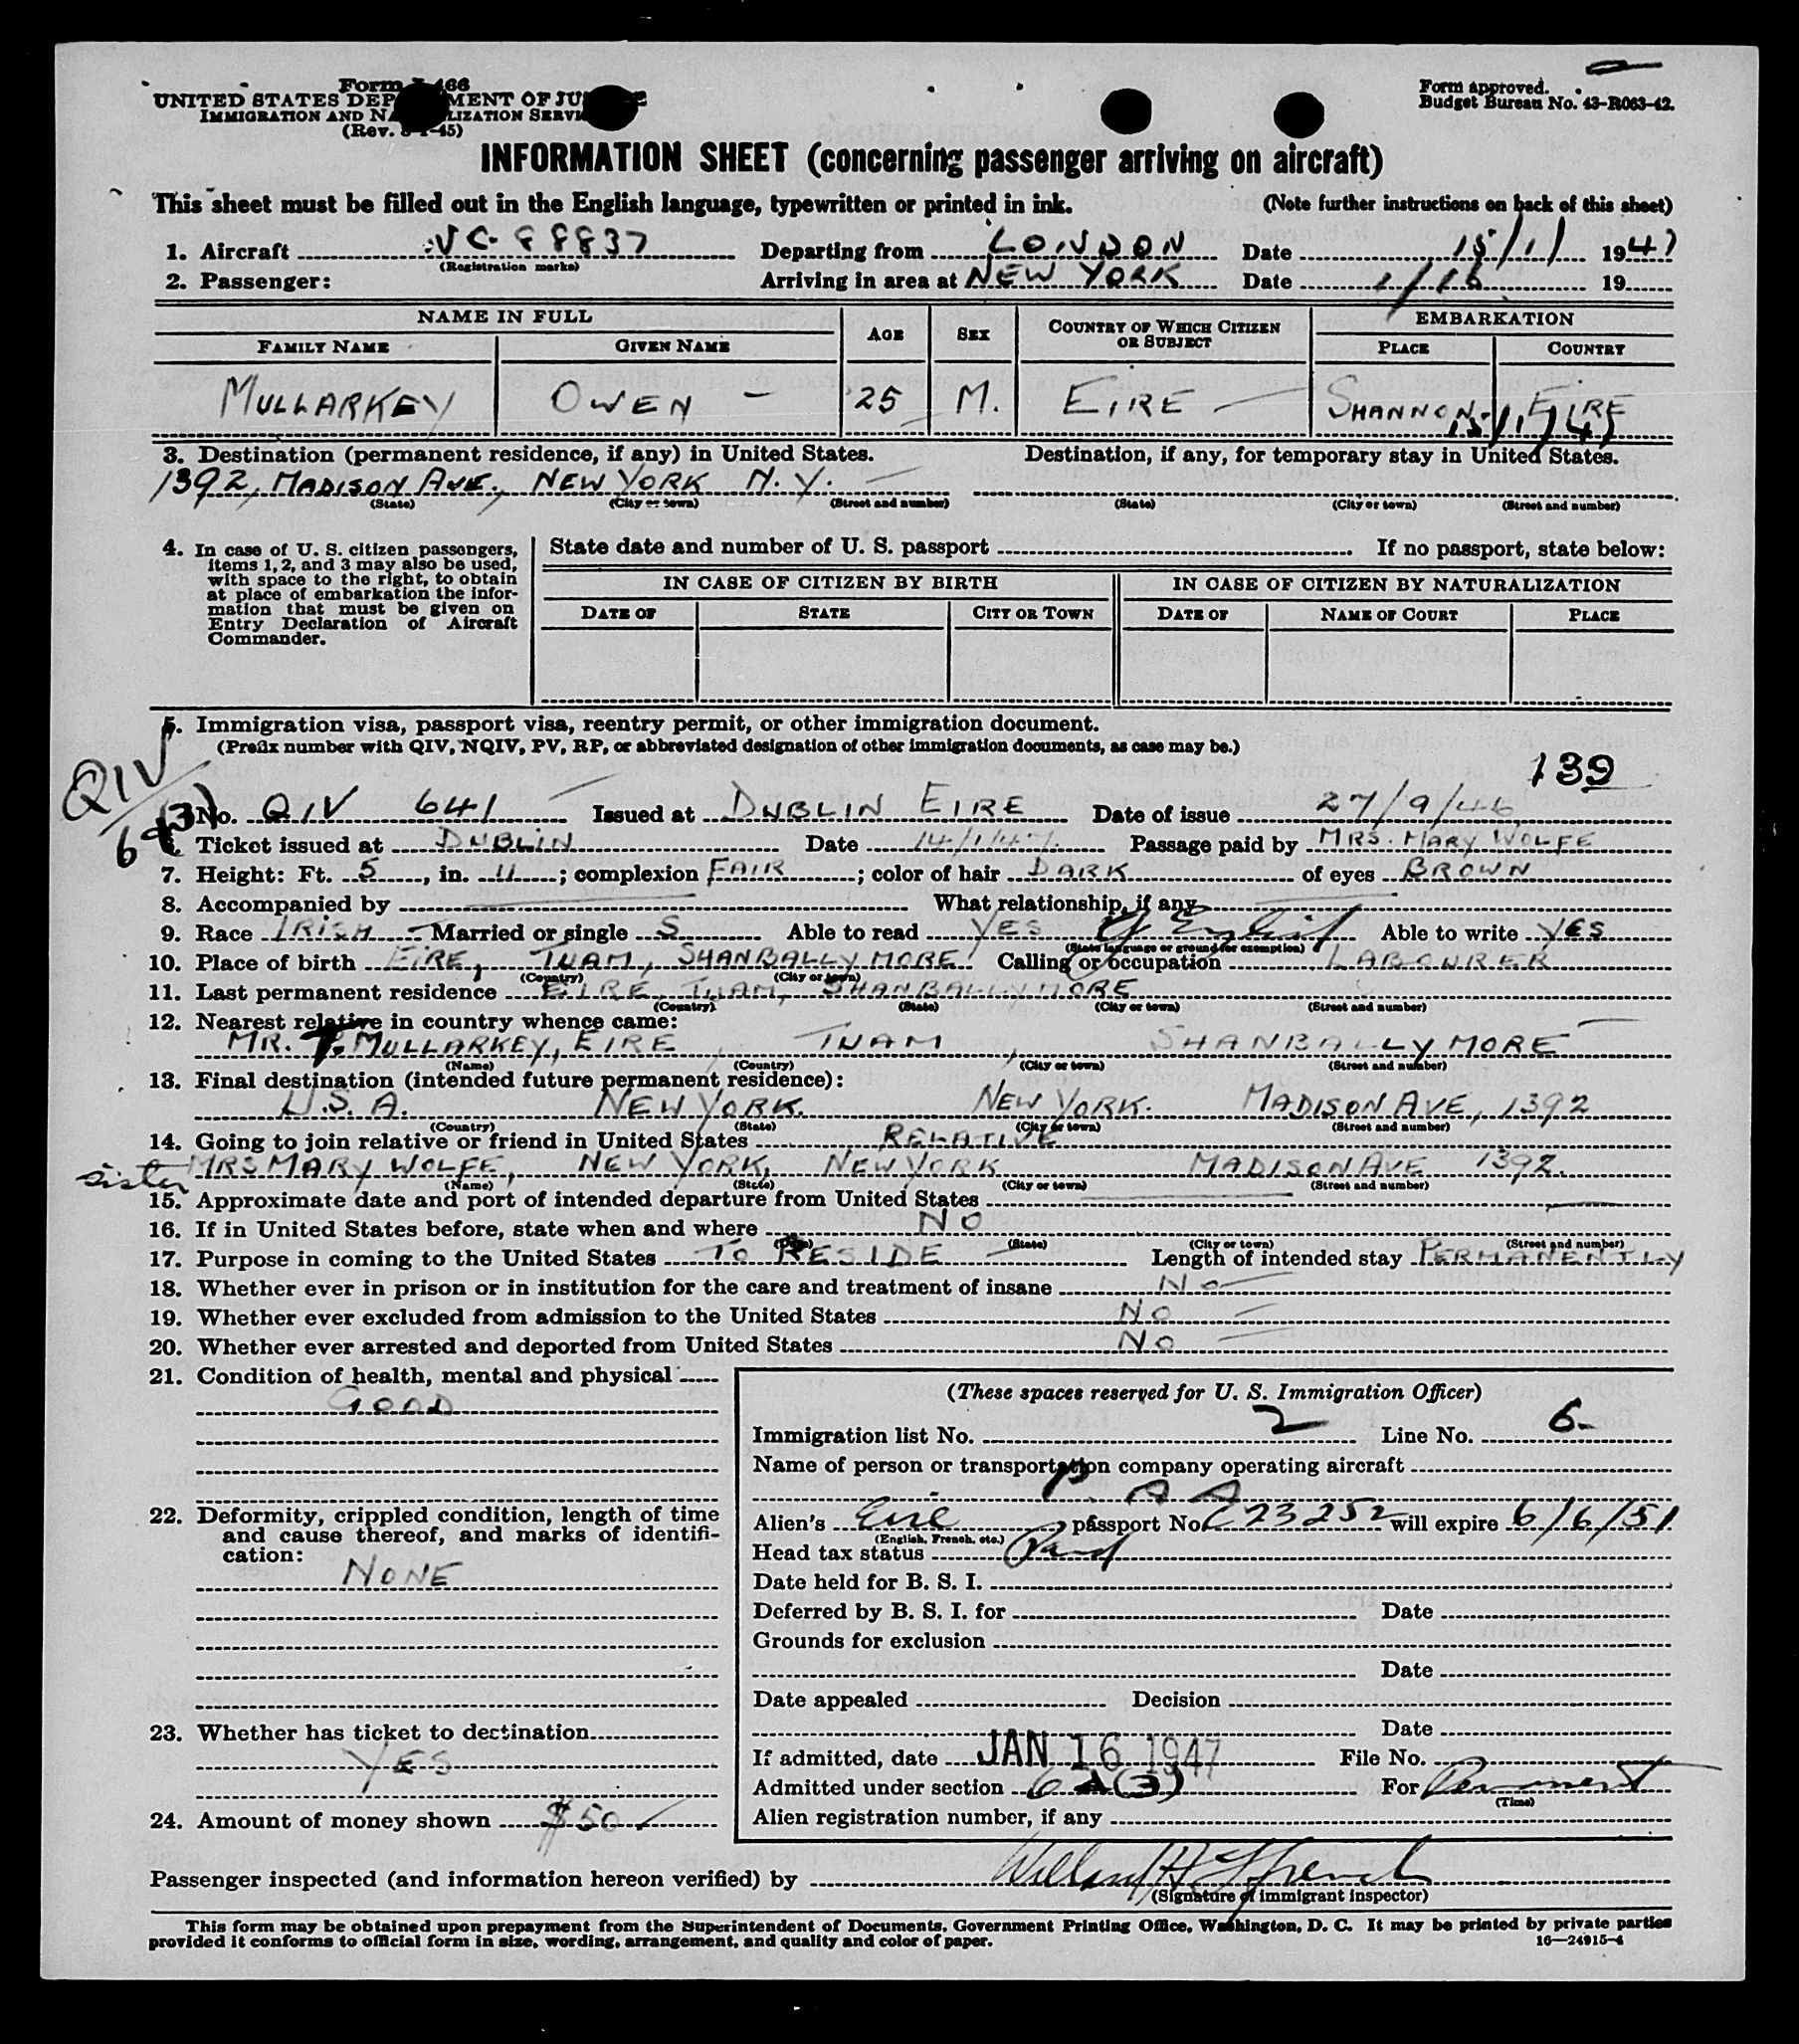 Form I-466
UNITED STATES DEPARTMENT OF JUSTICE
IMMIGRATION AND NATURALIZATION SERVICE
(Rev. -45)
Form approved.
Budget Bureau No. 43-R063-42.
INFORMATION SHEET (concerning passenger arriving on aircraft)
This sheet must be filled out in the English language, typewritten or printed in ink. (Note further instructions on back of this sheet)
1. Aircraft NC-88837 Departing from LONDON Date 15/1/ 1947
(Registration marks)
2. Passenger: Arriving in area at NEW YORK Date 1/16 19
NAME IN FULL AGE SEX COUNTRY OF WHICH CITIZEN OR SUBJECT EMBARKATION
FAMILY NAME GIVEN NAME PLACE COUNTRY
MULLARKEY OWEN - 25 M. EIRE SHANNON EIRE
15/1/47
3. Destination (permanent residence, if any) in United States. Destination, if any, for temporary stay in United States.
1392, MADISON AVE., NEW YORK N.Y.
(State) (City or town) (Street and number) (State) (City or town) (Street and number)
4. In case of U. S. citizen passengers, items 1, 2, and 3 may also be used, with space to the right, to obtain at place of embarkation the information that must be given on Entry Declaration of Aircraft Commander.
State date and number of U. S. passport If no passport, state below:
IN CASE OF CITIZEN BY BIRTH IN CASE OF CITIZEN BY NATURALIZATION
DATE OF STATE CITY OR TOWN DATE OF NAME OF COURT PLACE
5. Immigration visa, passport visa, reentry permit, or other immigration document.
(Prefix number with QIV, NQIV, PV, RP, or abbreviated designation of other immigration documents, as case may be.)
QIV
139
No. QIV 641 Issued at DUBLIN EIRE Date of issue 27/9/46
6. Ticket issued at DUBLIN Date 14/1/47. Passage paid by MRS. MARY WOLFE
7. Height: Ft. 5, in. 11; complexion FAIR; color of hair DARK of eyes BROWN
8. Accompanied by What relationship, if any
9. Race IRISH Married or single S Able to read YES English Able to write YES
(State language or ground for exemption)
10. Place of birth EIRE, TUAM, SHANBALLYMORE Calling or occupation LABOURER
(Country) (City or town)
11. Last permanent residence EIRE, TUAM, SHANBALLYMORE
(Country) (State) (City or town) (Street and number)
12. Nearest relative in country whence came:
MR. P. MULLARKEY, EIRE, TUAM, SHANBALLYMORE
(Name) (Country) (City or town) (Street and number)
13. Final destination (intended future permanent residence):
U.S.A. NEW YORK. NEW YORK. MADISON AVE, 1392
(Country) (State) (City or town) (Street and number)
14. Going to join relative or friend in United States RELATIVE
sister MRS MARY WOLFE, NEW YORK, NEW YORK MADISON AVE 1392.
(Name) (State) (City or town) (Street and number)
15. Approximate date and port of intended departure from United States
16. If in United States before, state when and where NO
(Date) (State) (City or town) (Street and number)
17. Purpose in coming to the United States TO RESIDE Length of intended stay PERMANENTLY
18. Whether ever in prison or in institution for the care and treatment of insane NO
19. Whether ever excluded from admission to the United States NO
20. Whether ever arrested and deported from United States NO
21. Condition of health, mental and physical
GOOD
22. Deformity, crippled condition, length of time and cause thereof, and marks of identification:
NONE
23. Whether has ticket to destination
YES
24. Amount of money shown $50
(These spaces reserved for U. S. Immigration Officer)
Immigration list No. 2 Line No. 6
Name of person or transportation company operating aircraft
P A A
Alien's Eire passport No. C23252 will expire 6/6/51
(English, French, etc.)
Head tax status Paid
Date held for B. S. I.
Deferred by B. S. I. for Date
Grounds for exclusion
Date
Date appealed Decision
Date
If admitted, date JAN 16 1947 File No.
Admitted under section 6 A (3) For Permanent
(Time)
Alien registration number, if any
Passenger inspected (and information hereon verified) by
(Signature of immigrant inspector)
This form may be obtained upon prepayment from the Superintendent of Documents, Government Printing Office, Washington, D. C. It may be printed by private parties
provided it conforms to official form in size, wording, arrangement, and quality and color of paper. 16—24915-4